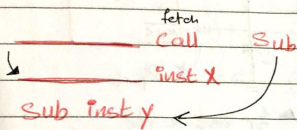 fetch
call Sub
inst X
Sub inst y